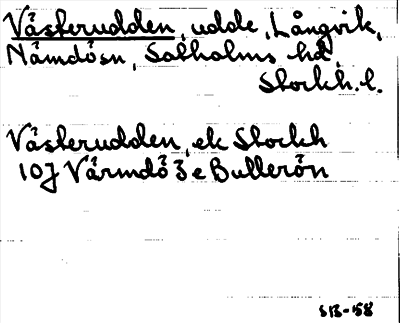 Västerudden, udde, Långvik,
Nämdösn, Solholms hd,
Stockh. l.
Västerudden, ek Stockh
10J Värmdö 3 e Bullerön
SB-58